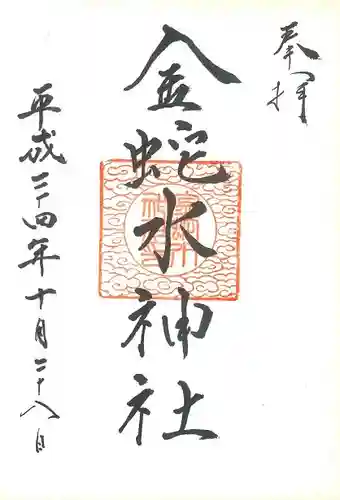 奉拝
金蛇水神社
平成二十四年十月二十八日